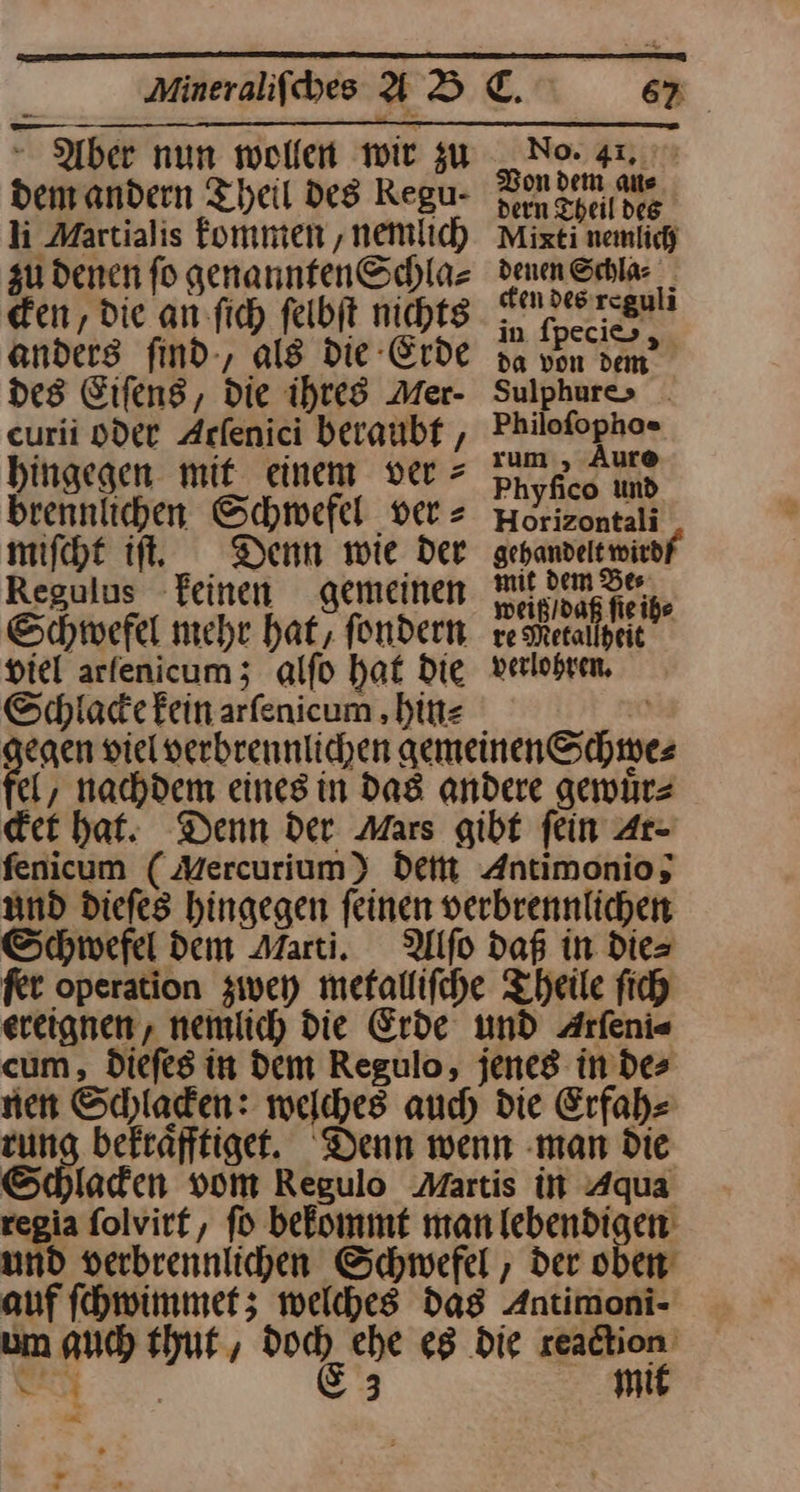 Mineraliſches A B C. 67
Aber nun wollen wir zu
dem andern Theil des Regu-
li Martialis kommen, nemlich
zu denen ſo genannten Schla-
cken, die an ſich ſelbſt nichts
anders ſind, als die Erde
des Eiſens, die ihres Mer-
curii oder Arſenici beraubt,
hingegen mit einem ver-
brennlichen Schwefel ver-
miſcht iſt. Denn wie der
Regulus keinen gemeinen
Schwefel mehr hat, ſondern
viel arſenicum; alſo hat die
Schlacke kein arſenicum, hin-
No. 41.
Von dem an-
dern Theil des
Mixti nemlich
denen Schla-
cken des reguli
in ſpecie,
da von dem
Sulphure
Philoſopho-
rum, Auro
Phyſico und
Horizontali
gehandelt wird/
mit dem Be-
weiß/daß ſie ih-
re Metallheit
verlohren.
gegen viel verbrennlichen gemeinen Schwe-
fel, nachdem eines in das andere gewuͤr-
cket hat. Denn der Mars gibt ſein Ar-
ſenicum (Mercurium) dem Antimonio;
und dieſes hingegen ſeinen verbrennlichen
Schwefel dem Marti. Alſo daß in die-
ſer operation zwey metalliſche Theile ſich
ereignen, nemlich die Erde und Arſeni-
cum, dieſes in dem Regulo, jenes in de-
nen Schlacken: welches auch die Erfah-
rung bekraͤfftiget. Denn wenn man die
Schlacken vom Regulo Martis in Aqua
regia ſolvirt, ſo bekommt man lebendigen
und verbrennlichen Schwefel, der oben
auf ſchwimmet; welches das Antimoni-
um auch thut, doch ehe es die reaction
E 3 mit